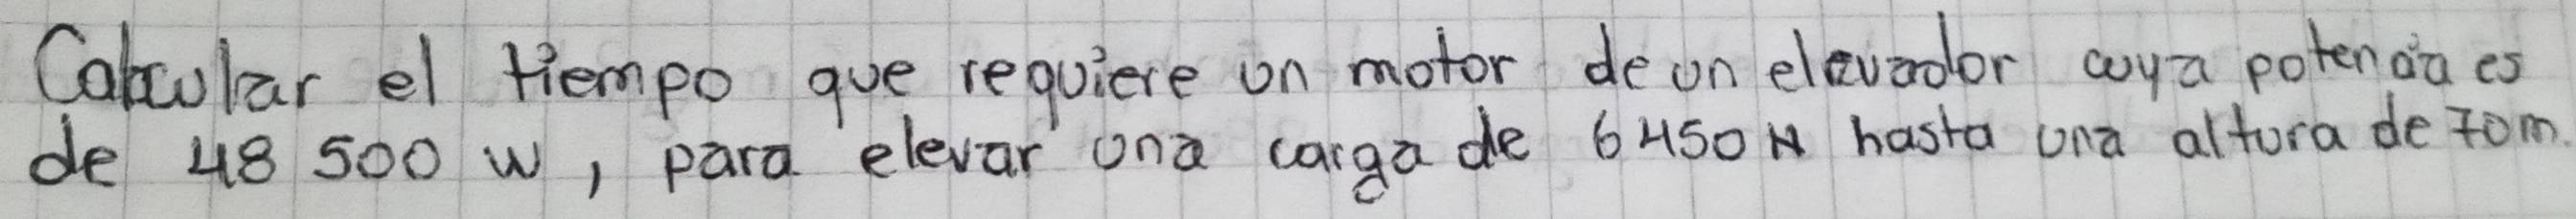 Calcular el tiempo que requiere un motor de un elevador cuya potencia es
de 48 500 W, para elevar una carga de 6450 N hasta una altura de 70m.